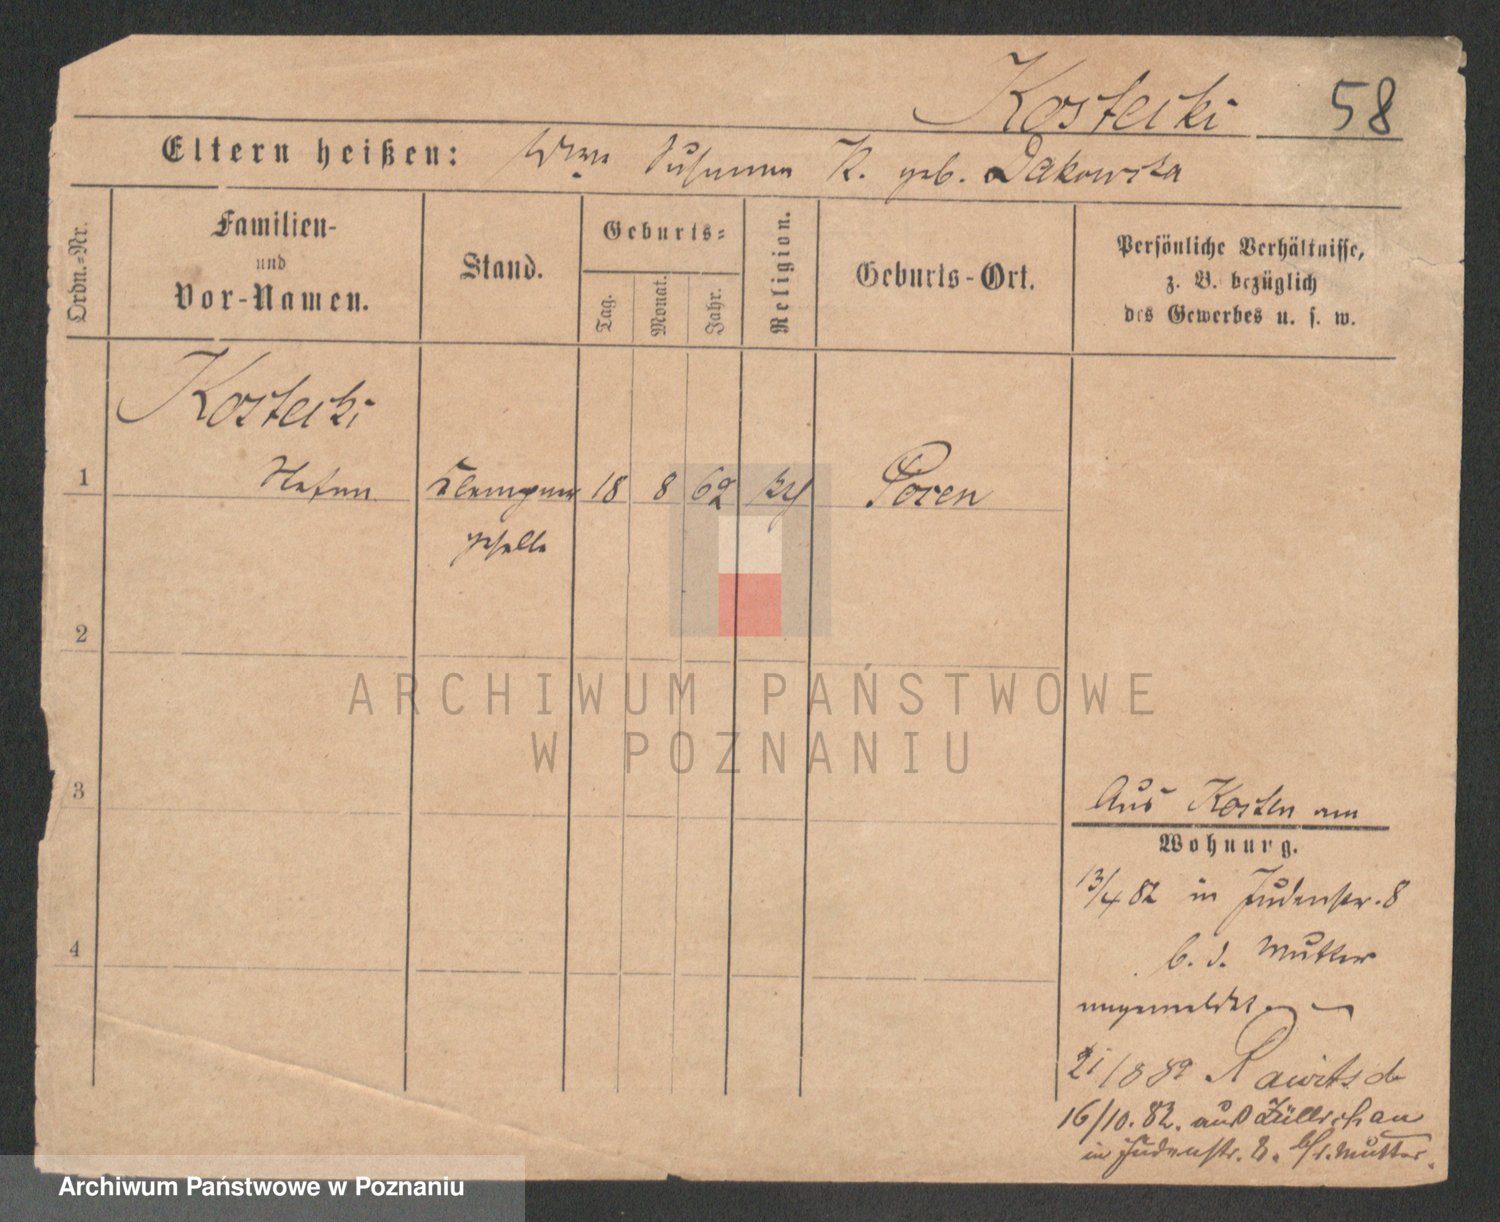 Kostecki 58
Eltern heißen: Wwe Susanna K. geb. Dakowska
Ordn.=Nr.
Familien-
und
Vor-Namen.
Stand.
Geburts=
Tag.
Monat.
Jahr.
Religion.
Geburts-Ort.
Persönliche Verhältnisse,
z. B. bezüglich
des Gewerbes u. s. w.
Kostecki
1 Stefan Klempner 18 8 62 kth Posen
geselle
2
ARCHIWUM PAŃSTWOWE
W POZNANIU
3
Aus Kosten am
Wohnung.
13/4 82 in Judenstr. 8
b. d. Mutter
angemeldet
4
21/8 82 Rawitsch
16/10. 82. aus Züllichau
in Judenstr. 8. b/d. Mutter.
Archiwum Państwowe w Poznaniu